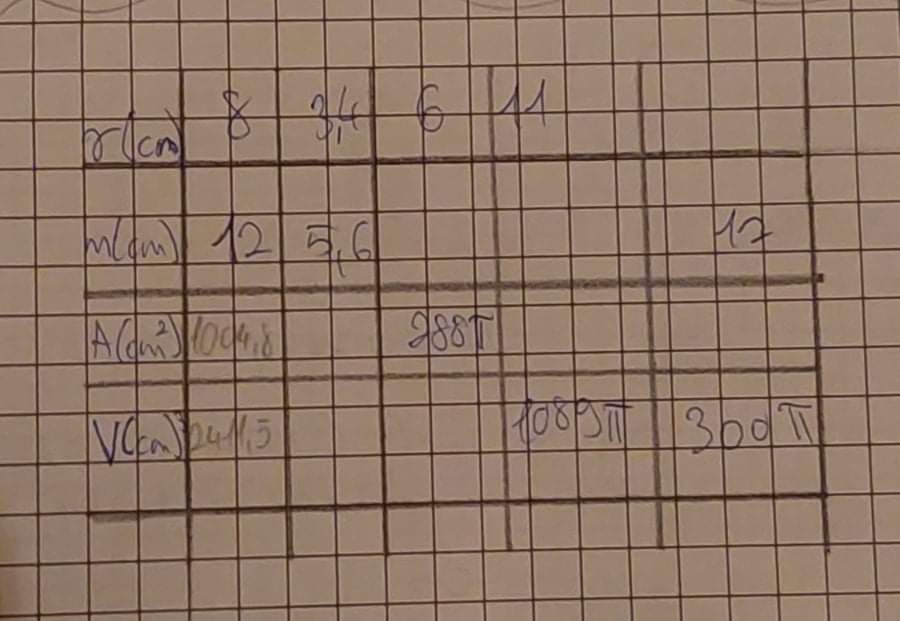 r(cm) 8 3,4 6 11
m(cm) 12 5,6 12
A(cm²) 1004,8 288π
V(cm) 2411,5 1089π 360π